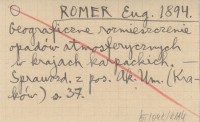 ROMER Eug. 1894.
Geograficzne rozmieszczenie
opadów atmosferycznych
w krajach karpackich. —
Sprawozd. z pos. Ak. Um. (Kra-
ków) s. 37.